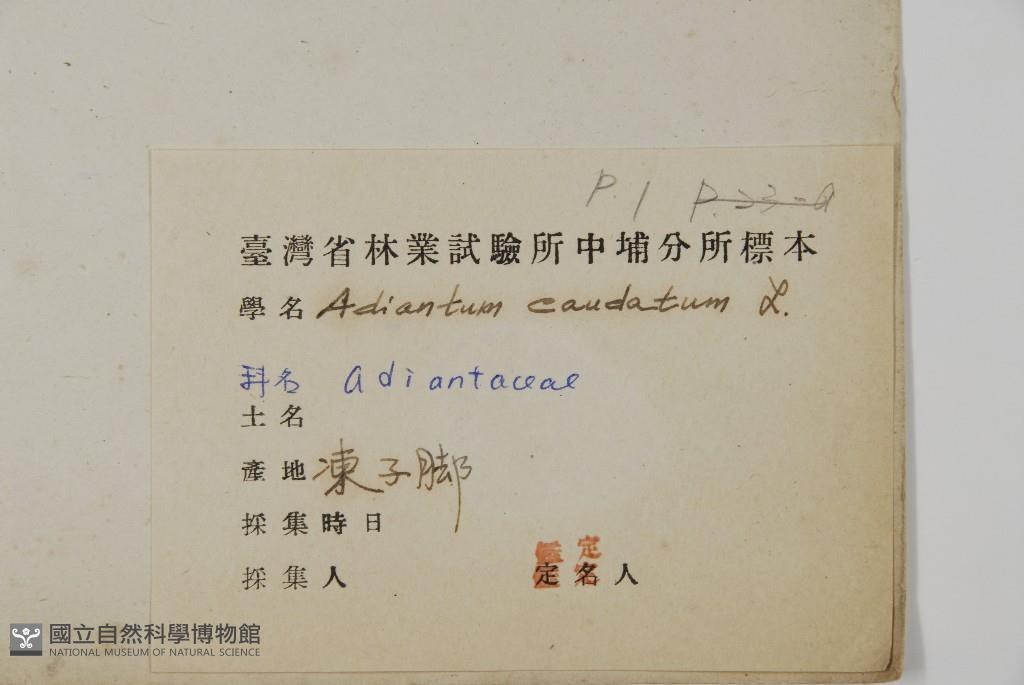 P.1 P.23-a
臺灣省林業試驗所中埔分所標本
學名 Adiantum caudatum L.
科名 Adiantaceae
土名
產地 凍子脚
採集時日
採集人 定名人
鑑定
國立自然科學博物館
NATIONAL MUSEUM OF NATURAL SCIENCE